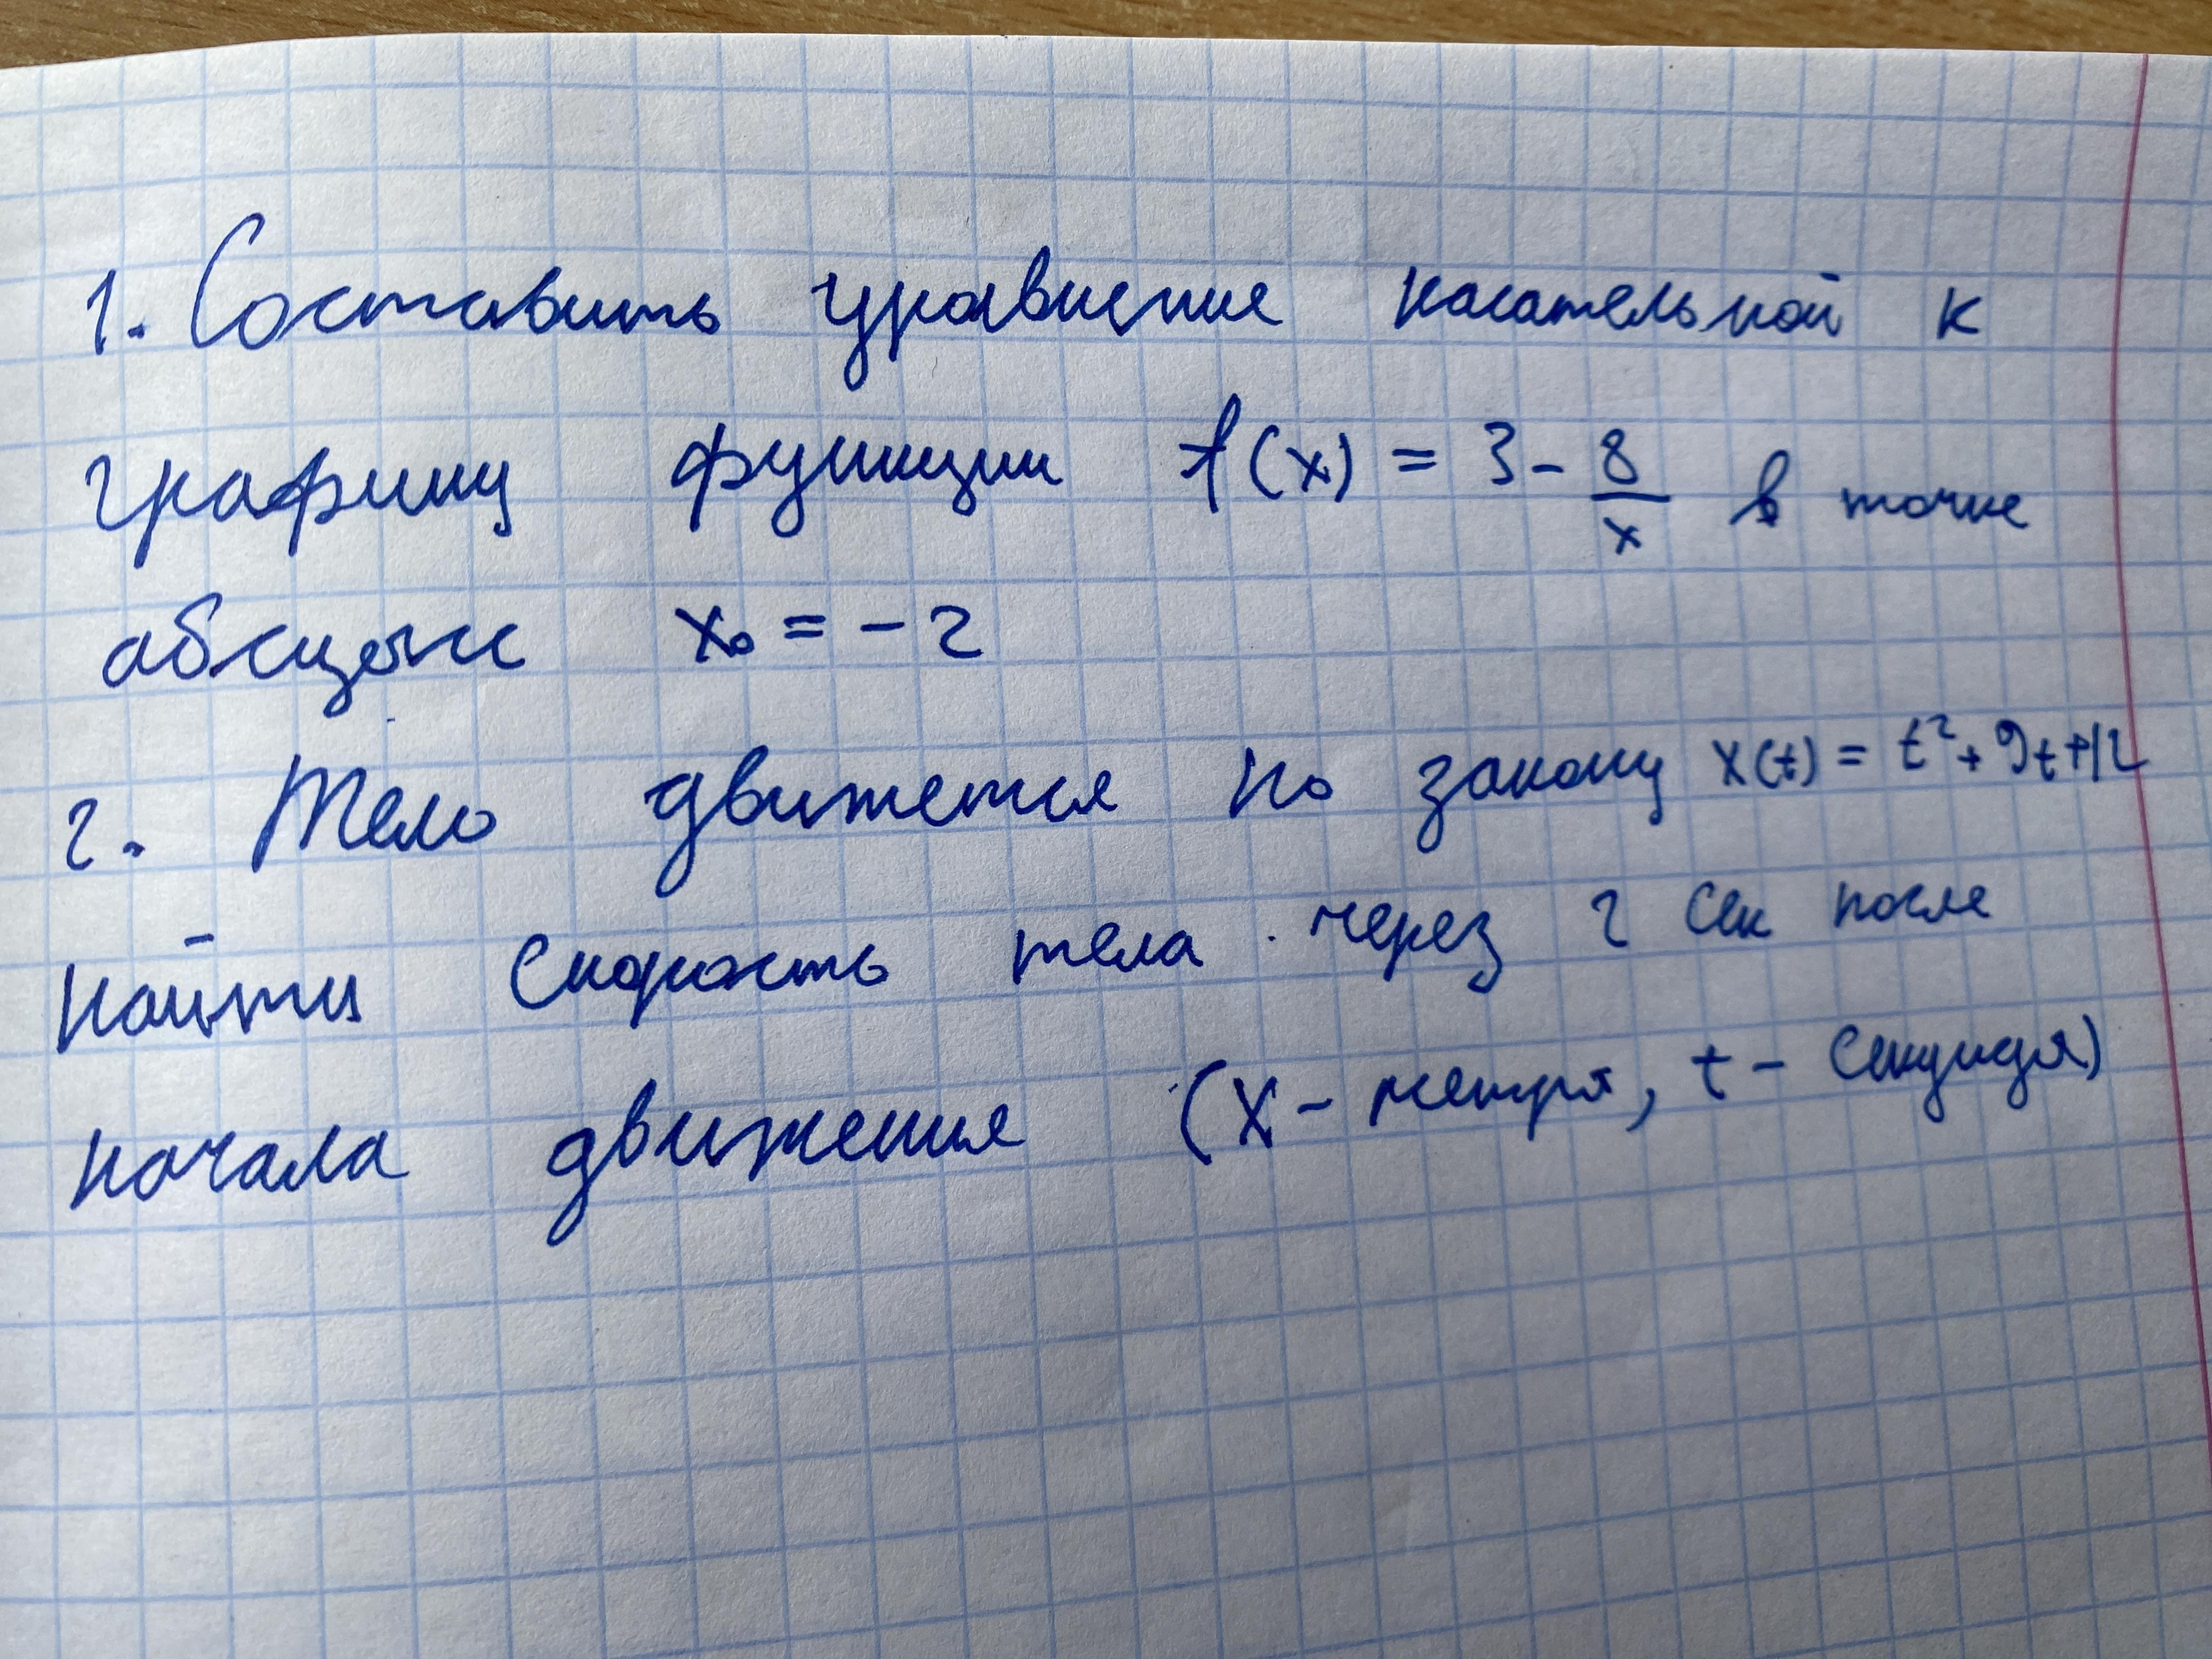 1. Составить уравнение касательной к
графику функции f(x) = 3 - 8/x в точке
абсцысс x₀ = - 2
2. Тело движется по закону x(t) = t² + 9t + 12
найти скорость тела через 2 сек после
начала движения (x - метры, t - секунды)